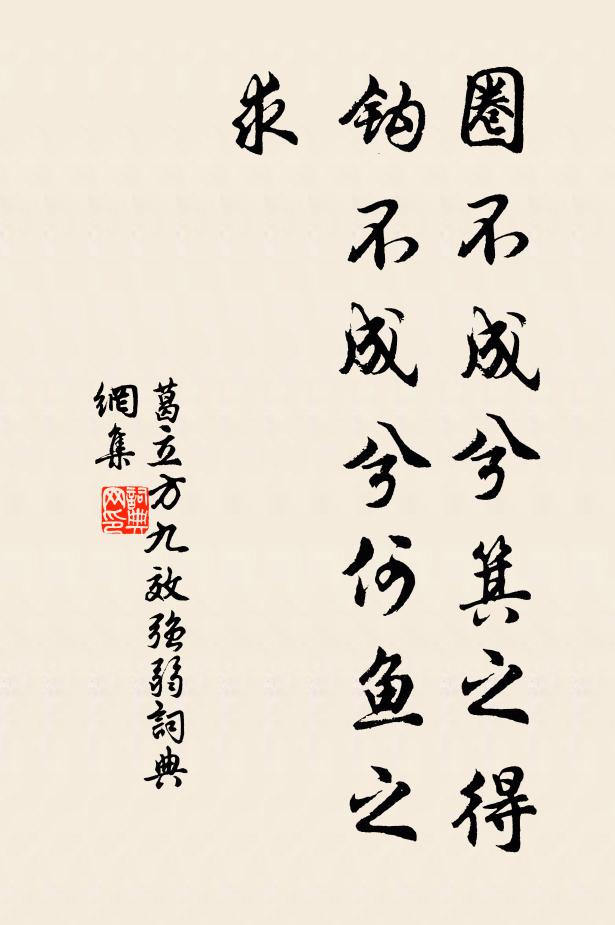 圈不成兮箕之得
鈎不成兮何魚之
求
葛立方九效強弱詞典
網集
詞典
网印